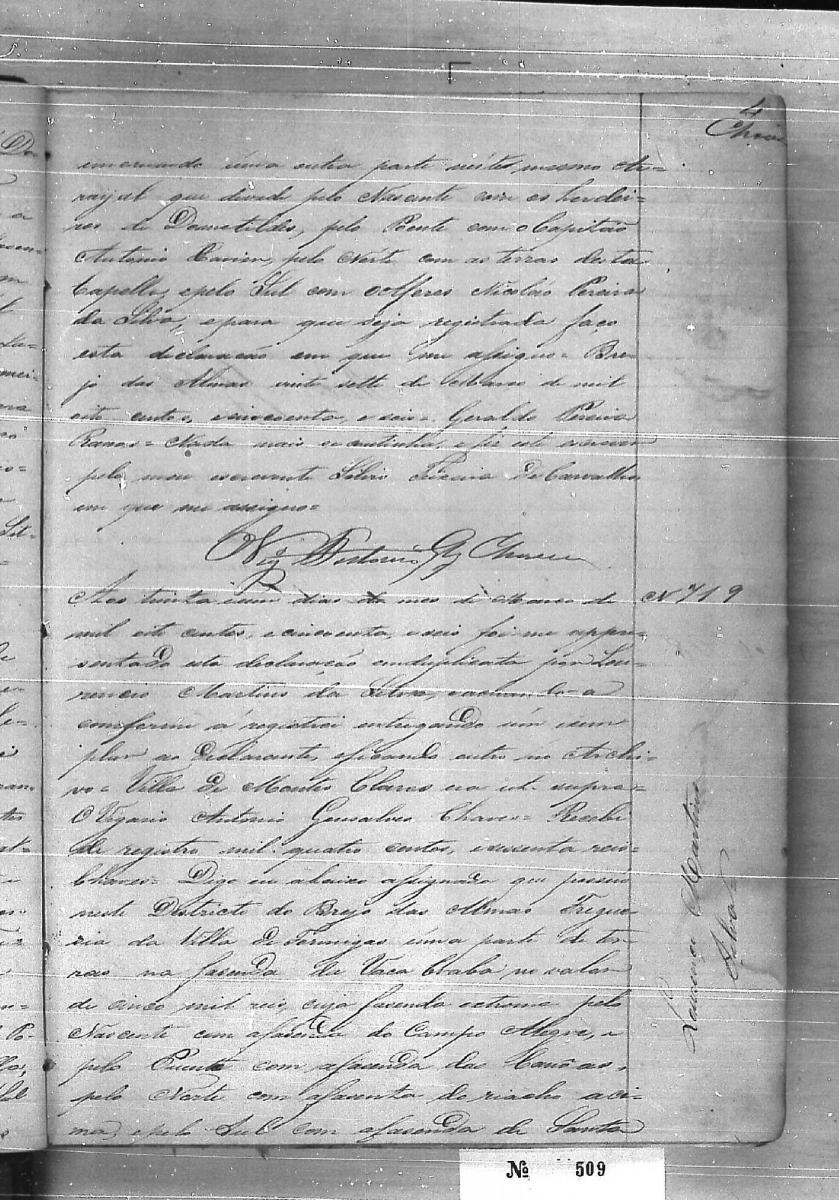 4
Chaves
uma outra parte neste mesmo Ar-
rayal que devide pelo Nascente com os herdei-
ros de Donatildes, pelo Poente com o Capitão
Antonio Xavier, pelo Norte com as terras desta
Capella, e pelo Sul com o Alferes Nicoláo Pereira
da Silva, e para que seja registrada faço
esta declaração em que me assigno = Bre-
jo das Almas vinte sette de Março de mil
oito centos, e sincoenta, e seis = Geraldo Pereira
Ramos = Nada mais se continha, e fiz este escrever
pelo meu escrevente Silvio Teixeira de Carvalho
em que me assigno =
Vigº Antonio Glz Chaves
Aos trinta e um dias do mes de Março de
Nº 719
mil oito centos, e cincoenta, e seis foi-me appre-
sentada esta declaração em duplicata por Lou-
rencio Martins da Silva, e achando-a
comforme a registrei entregando um exem
plar ao declarante, e ficando outro no Archi-
vo = Villa de Montes Claros era ut supra =
O Vigario Antonio Gonsalves Chaves = Recebi
de registro mil quatro centos, e secenta reis
Chaves = Digo eu abaixo assignado que possuo
neste Districto do Brejo das Almas Fregue-
sia da Villa de Formigas uma parte de ter-
ras na fasenda de Vaca Braba no valor
de cinco mil reis, cuja fasenda extrema pelo
Nascente com a fasenda do Campo Alegre, e
pelo Puente com a fasenda das
pelo Norte com a fasenda do riacho aci-
ma, e pelo Sul com a fasenda de Santa
Lourenço Martins
Silva
Nº 509